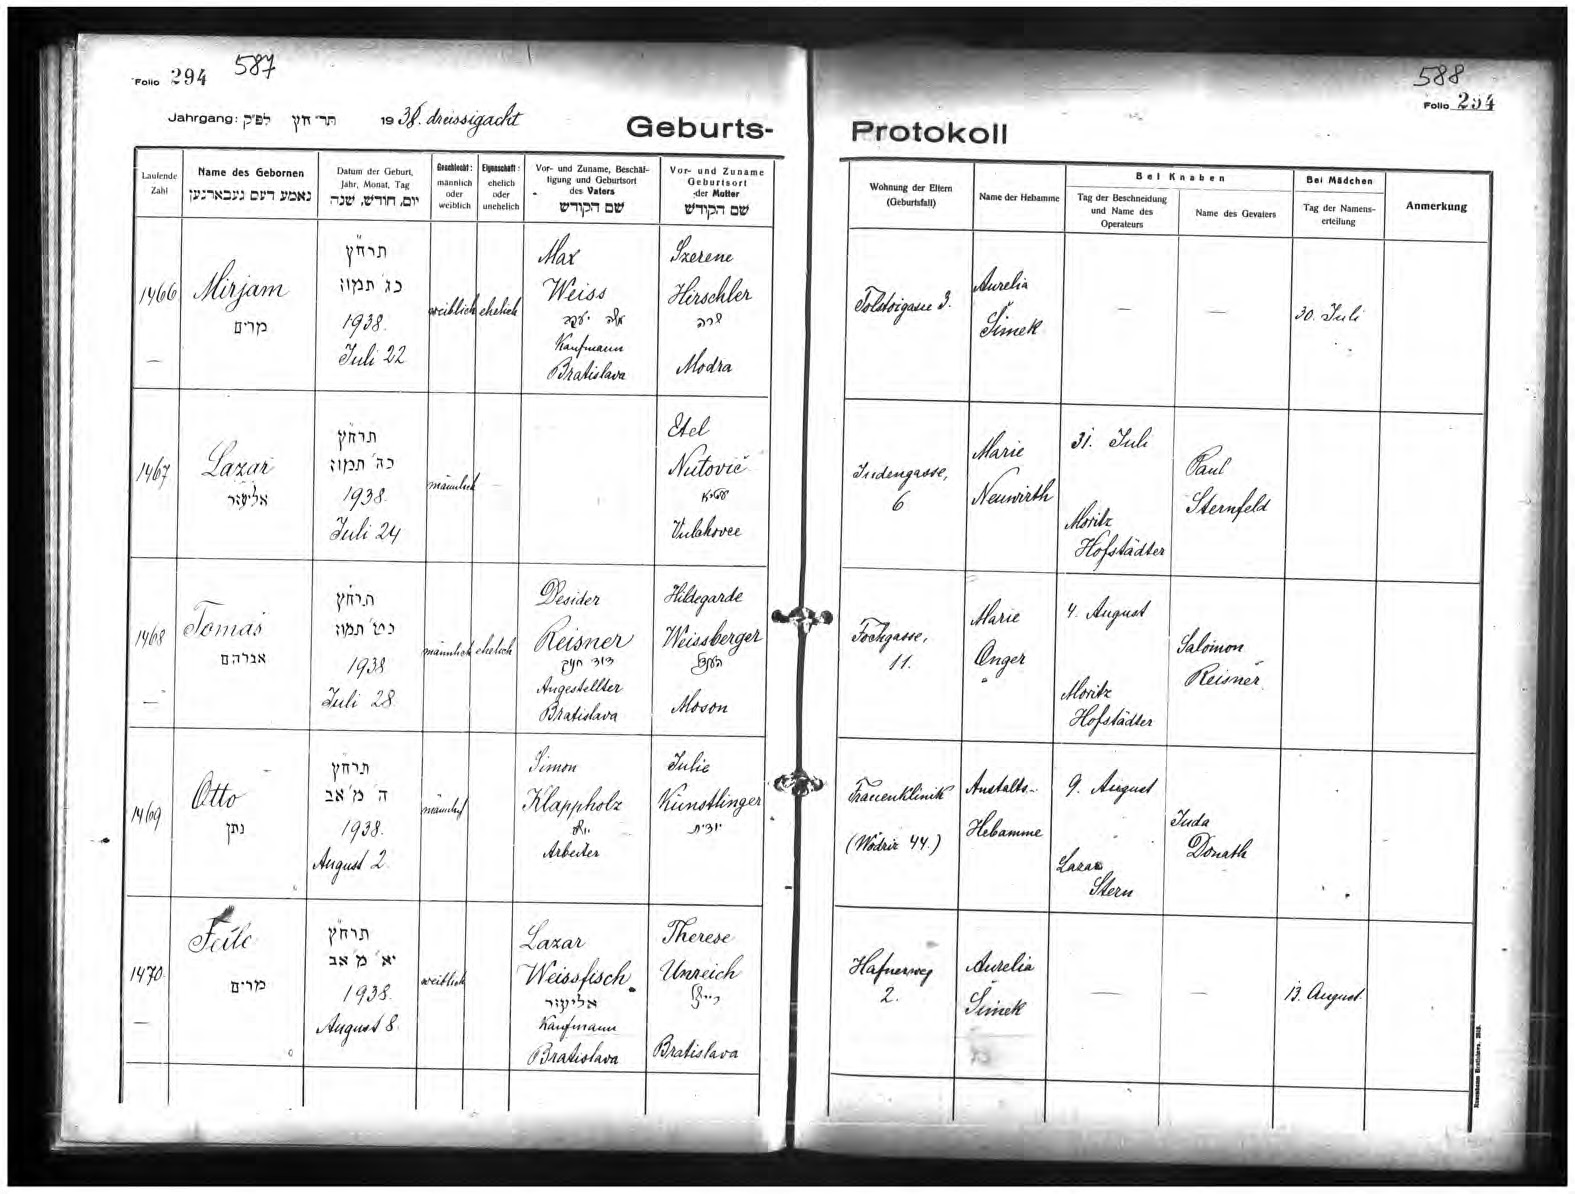 Folio 294 587
Jahrgang: לפ"ק תרח"ץ 1938. dreissigacht
Geburts-
Laufende Zahl
Name des Gebornen
נאמע דעס געבארנען
Datum der Geburt, Jahr, Monat, Tag
יום, חודש, שנה
Geschlecht: männlich oder weiblich
Eigenschaft: ehelich oder unehelich
Vor- und Zuname, Beschäftigung und Geburtsort des Vaters
שם הקודש
Vor- und Zuname Geburtsort der Mutter
שם הקודש
1466
Mirjam
מרים
—
תרח"ץ
כג' תמוז
1938.
Juli 22
weiblich
ehelich
Max
Weiss
משה יעקב
Kaufmann
Bratislava
Szerene
Hirschler
שרה
Modra
1467
Lazar
אליעזר
תרח"ץ
כה' תמוז
1938.
Juli 24
männlich
Etel
Nutovič
Vulchovce
1468
Tomás
אברהם
—
תרח"ץ
כט' תמוז
1938
Juli 28.
männlich
ehelich
Desider
Reisner
דוד
Angestellter
Bratislava
Hildegarde
Weissberger
Moson
1469
Otto
נתן
תרח"ץ
ה' מ' אב
1938.
August 2.
männlich
Simon
Klappholz
Arbeiter
Julie
Künstlinger
יודית
1470.
Feile
מרים
—
תרח"ץ
יא' מ' אב
1938.
August 8.
weiblich
Lazar
Weissfisch
אליעזר
Kaufmann
Bratislava
Therese
Unreich
Bratislava
588
Folio 294
Protokoll
Wohnung der Eltern (Geburtsfall)
Name der Hebamme
Bei Knaben
Tag der Beschneidung und Name des Operateurs
Name des Gevaters
Bei Mädchen
Tag der Namenserteilung
Anmerkung
Tolstoigasse 3.
Aurelia
Šimek
—
—
30. Juli
Judengasse,
6
Marie
Neuwirth
31. Juli
Moritz
Hofstädter
Paul
Sternfeld
Fochgasse,
11.
Marie
Onger
4. August
Moritz
Hofstädter
Salomon
Reisner
Frauenklinik
(Wödritz 44.)
Anstalts-
Hebamme
9. August
Lazar
Stern
Juda
Donath
Hafnerweg
2.
Aurelia
Šimek
—
—
13. August.